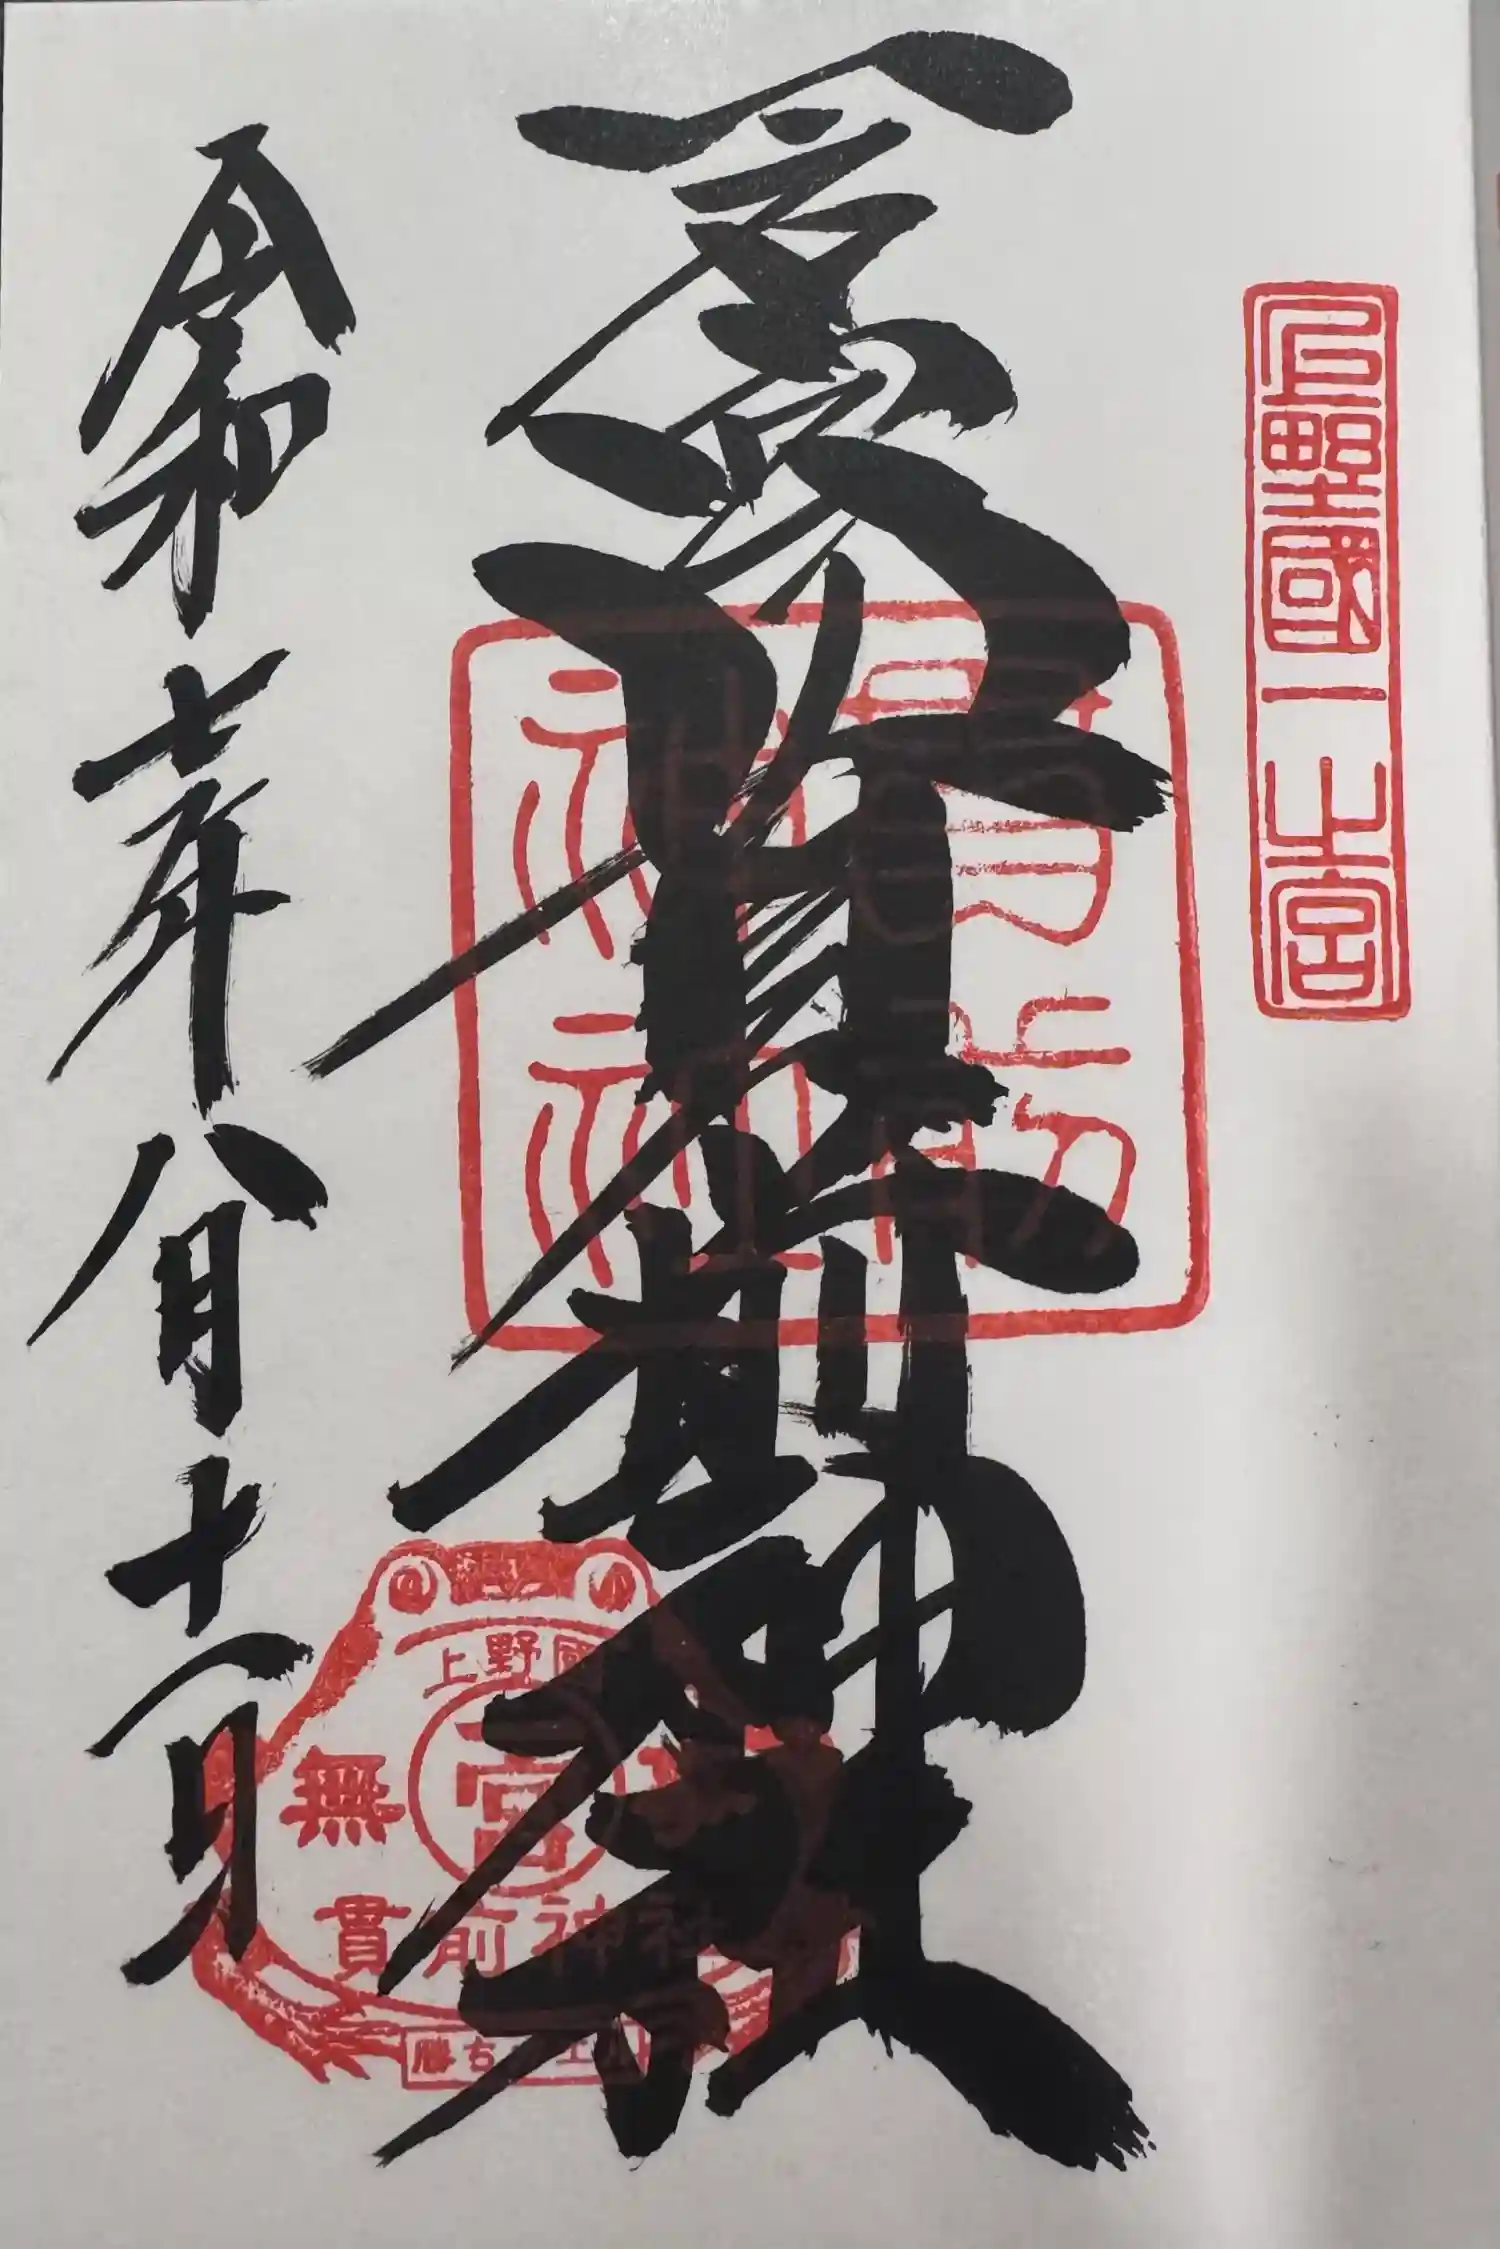 上野國一之宮
一宮貫前神社
貫前
神社
令和七年八月十一日
上野國
一宮
無
貫前神社